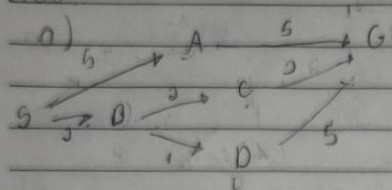 a)
A 5 G
5
S 2 B 2 C 2
1 D 5